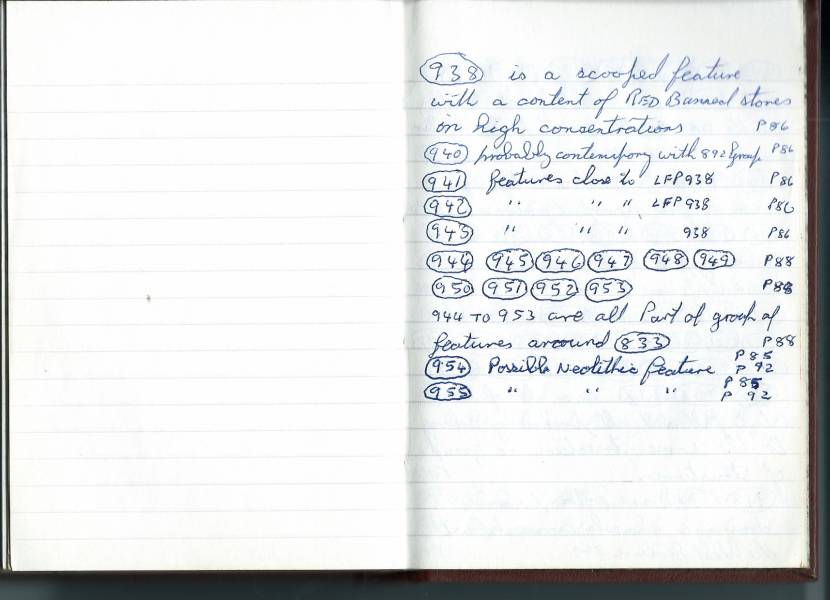 938 is a scooped feature
with a content of RED Banned stones
in high consentrations P86
940 probably contempory with 892 group P86
941 features close to LFP 938 P86
942 " " " LFP 938 P86
943 " " " 938 P86
944 945 946 947 948 949 P88
950 951 952 953 P88
944 TO 953 are all Part of group of
features around 833 P88
954 Possible Neolithic feature P85 P 92
955 " " " P85 P 92